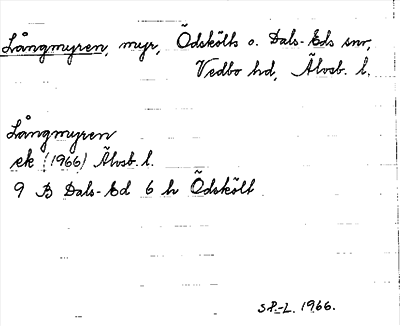 Långmyren, myr, Ödskölts o. Dals-Eds snr,
Vedbo hd, Älvsb. l.
Långmyren
ek (1966) Älvsb. l.
9 B Dals-Ed 6 h Ödskölt
SP.-L. 1966.